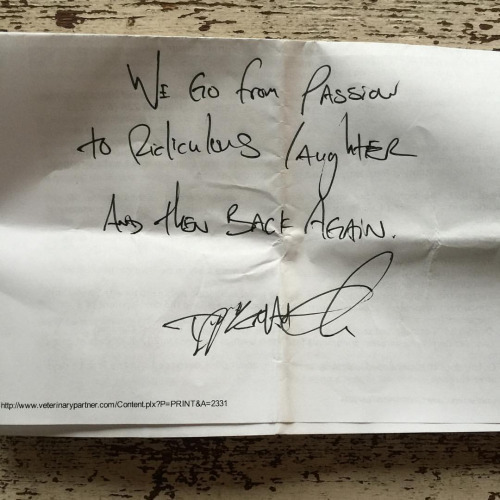 We Go from Passion
to Ridiculous laughter
And then Back Again.
http://www.veterinarypartner.com/Content.plx?P=PRINT&A=2331